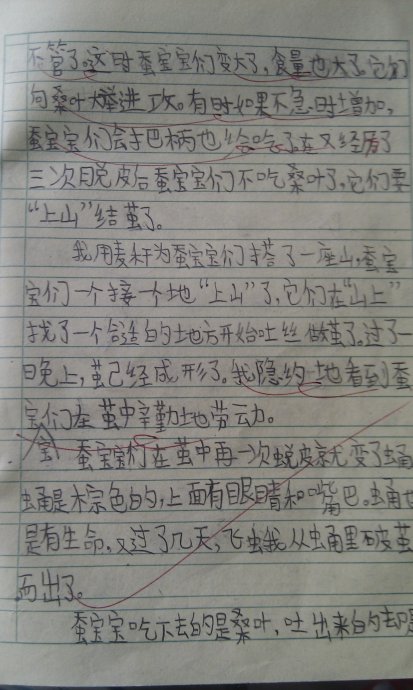 不管了。这时蚕宝宝们变大了，食量也大了。它们
向桑叶大举进攻。有时如果不急时增加，
蚕宝宝们会于巴柄也给吃了。在又经历了
三次脱皮后蚕宝宝们不吃桑叶了，它们要
“上山”结茧了。
我用麦秆为蚕宝宝们搭了一座山，蚕宝
宝们一个接一个地“上山”了，它们在“山上”
找了一个合适的地方开始吐丝做茧了。过了一
日晚上，茧已经成形了。我隐约地看到蚕
宝们在茧中辛勤地劳动力。
蚕宝宝们在茧中再一次蜕皮就变了蛹
蛹是棕色的，上面有眼睛和嘴巴。蛹也
是有生命，又过了几天，飞虫我从蛹里破茧
而出了。
蚕宝宝吃下去的是桑叶，吐出来的却是